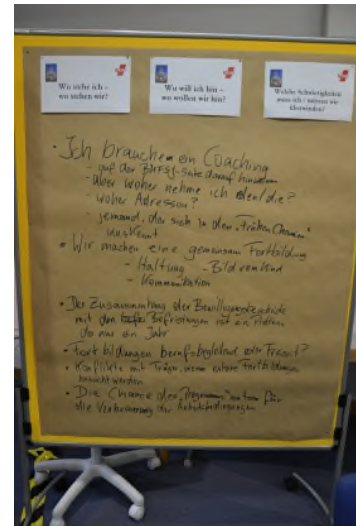 Wo stehe ich –
wo stehen wir?
Wo will ich hin –
wo wollen wir hin?
Welche Schwierigkeiten
muss ich / müssen wir
überwinden?
· Ich brauche ein Coaching
- auf der BMFSJ-Seite darauf hinweisen
- aber woher nehme ich den/die?
- woher Adressen?
- jemand, der sich in den „Frühen Chancen"
auskennt
· Wir machen eine gemeinsam Fortbildung
- Haltung - Bild vom Kind
- Kommunikation
· Der Zusammenhang der Bewilligungsbescheide
mit den Befristungen ist ein Problem
da nur ein Jahr
· Fortbildungen berufsbegleitend oder Freizeit?
· Konflikte mit Träger, wenn externe Fortbildungen
besucht werden
· Die Chance des Programms nutzen für
die Verbesserung der Arbeitsbedingungen